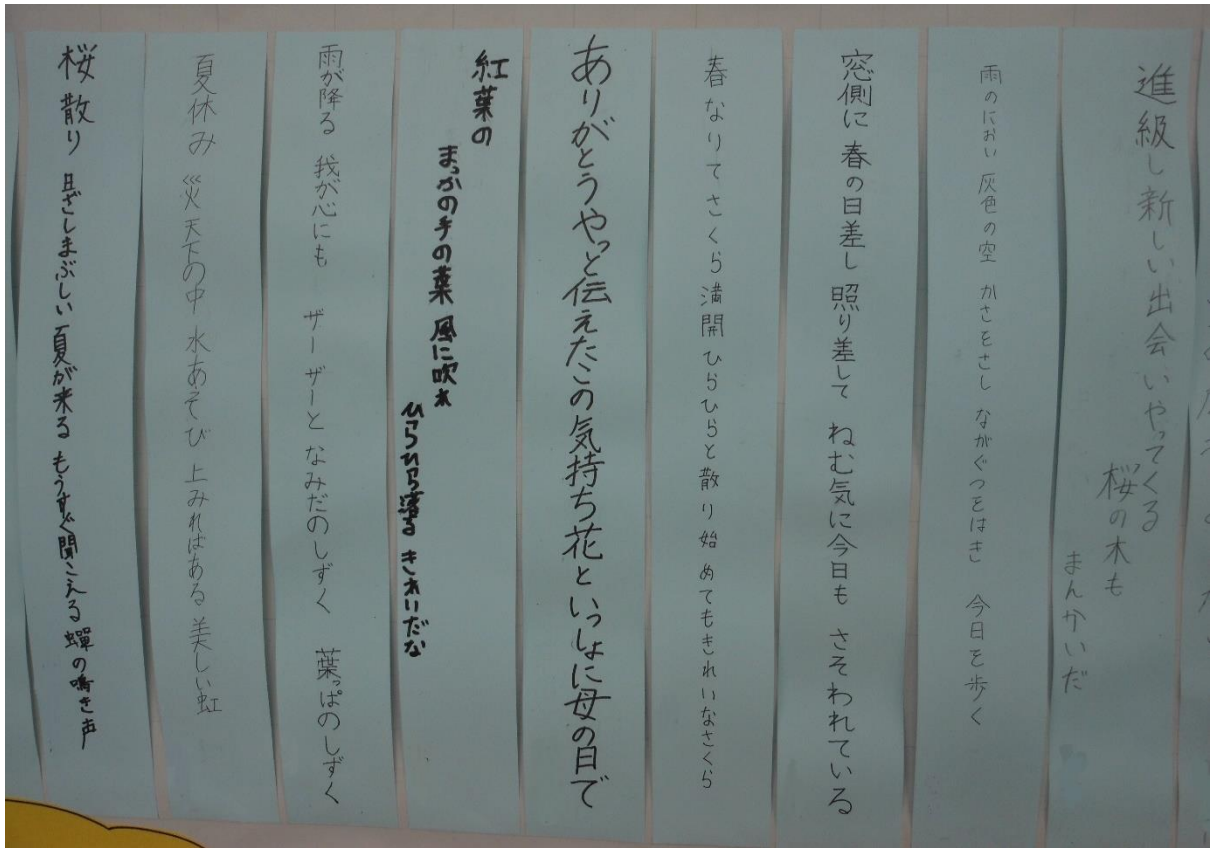 進級し新しい出会いやってくる
桜の木も
まんかいだ
雨のにおい 灰色の空 かさをさし ながぐつをはき 今日を歩く
窓側に 春の日差し 照り差して ねむ気に今日も さそわれている
春なりて さくら満開ひらひらと散り始めてもきれいなさくら
ありがとうやっと伝えたこの気持ち花といっしょに母の日で
紅葉の
まっかの手の葉 風に吹れ
ひらひら落る きれいだな
雨が降る 我が心にも ザーザーと なみだのしずく 葉っぱのしずく
夏休み 災天下の中 水あそび 上みればある 美しい虹
桜散り 日ざしまぶしい 夏が来る もうすぐ聞こえる 蟬の鳴き声